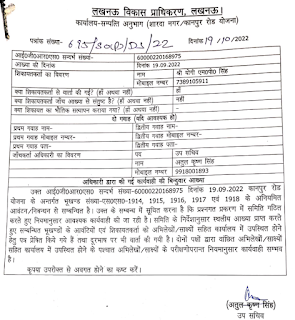 लखनऊ विकास प्राधिकरण, लखनऊ।
कार्यालय-सम्पत्ति अनुभाग (शारदा नगर/कानपुर रोड योजना)
पत्रांक संख्या- दिनांक 19/10/2022
आई0जी0आर0एस0 सन्दर्भ संख्या- 60000220168975
आख्या की दिनांक 19.09.2022
शिकायतकर्ता का विवरण नाम श्री योगी एम0पी0 सिंह
मोबाइल नम्बर 7389105911
क्या शिकायतकर्ता से वार्ता की गई? (हॉ अथवा नही) हॉ
क्या शिकायतकर्ता जॉच आख्या से संतुष्ट है? (हॉ अथवा नही)
क्या शिकायत का भौतिक सत्यापन कराया गया? (हॉ अथवा नही) -
दो गवाह (यदि आवश्यक हो)
प्रथम गवाह नाम- द्वितीय गवाह नाम-
प्रथम गवाह मोबाइल नम्बर- द्वितीय गवाह मोबाइल नम्बर-
प्रथम गवाह पता- द्वितीय गवाह पता-
जॉचकर्ता अधिकारी का विवरण पद उप सचिव
नाम अतुल कृष्ण सिंह
मोबाइल नम्बर 9918001893
अधिकारी द्वारा की गई कार्यवाही की बिन्दुवार आख्या
उक्त आई0जी0आर0एस0 सन्दर्भ संख्या-60000220168975 दिनांक 19.09.2022 कानपुर रोड
योजना के अन्तर्गत भूखण्ड संख्या-एस0एस0-1914, 1915, 1916, 1917 एवं 1918 के अनियमित
आवंटन/निबन्धन से सम्बन्धित है। उक्त के सम्बन्ध में सूचित करना है कि प्रश्नगत प्रकरण में समिति गठित
करते हुए नियमानुसार आवश्यक कार्यवाही की जा रही है। समिति के निर्देशानुसार स्थलीय आख्या प्राप्त करते
हुए सम्बन्धित भूखण्ड के आवंटियों एवं शिकायतकर्ता को अभिलेखों/साक्ष्यों सहित कार्यालय में उपस्थित होने
हेतु पत्र प्रेषित किये गये है तथा दूरभाष पर भी वार्ता की गयी है। दोनों पक्षों द्वारा वांछित अभिलेखों/साक्ष्यों
सहित कार्यालय में उपस्थित होने के पश्चात अभिलेखों/साक्ष्यों के परीक्षणोपरान्त नियमानुसार कार्यवाही सम्भव
है।
कृपया उपरोक्त से अवगत होने का कष्ट करें।
(अतुल कृष्ण सिंह)
उप सचिव